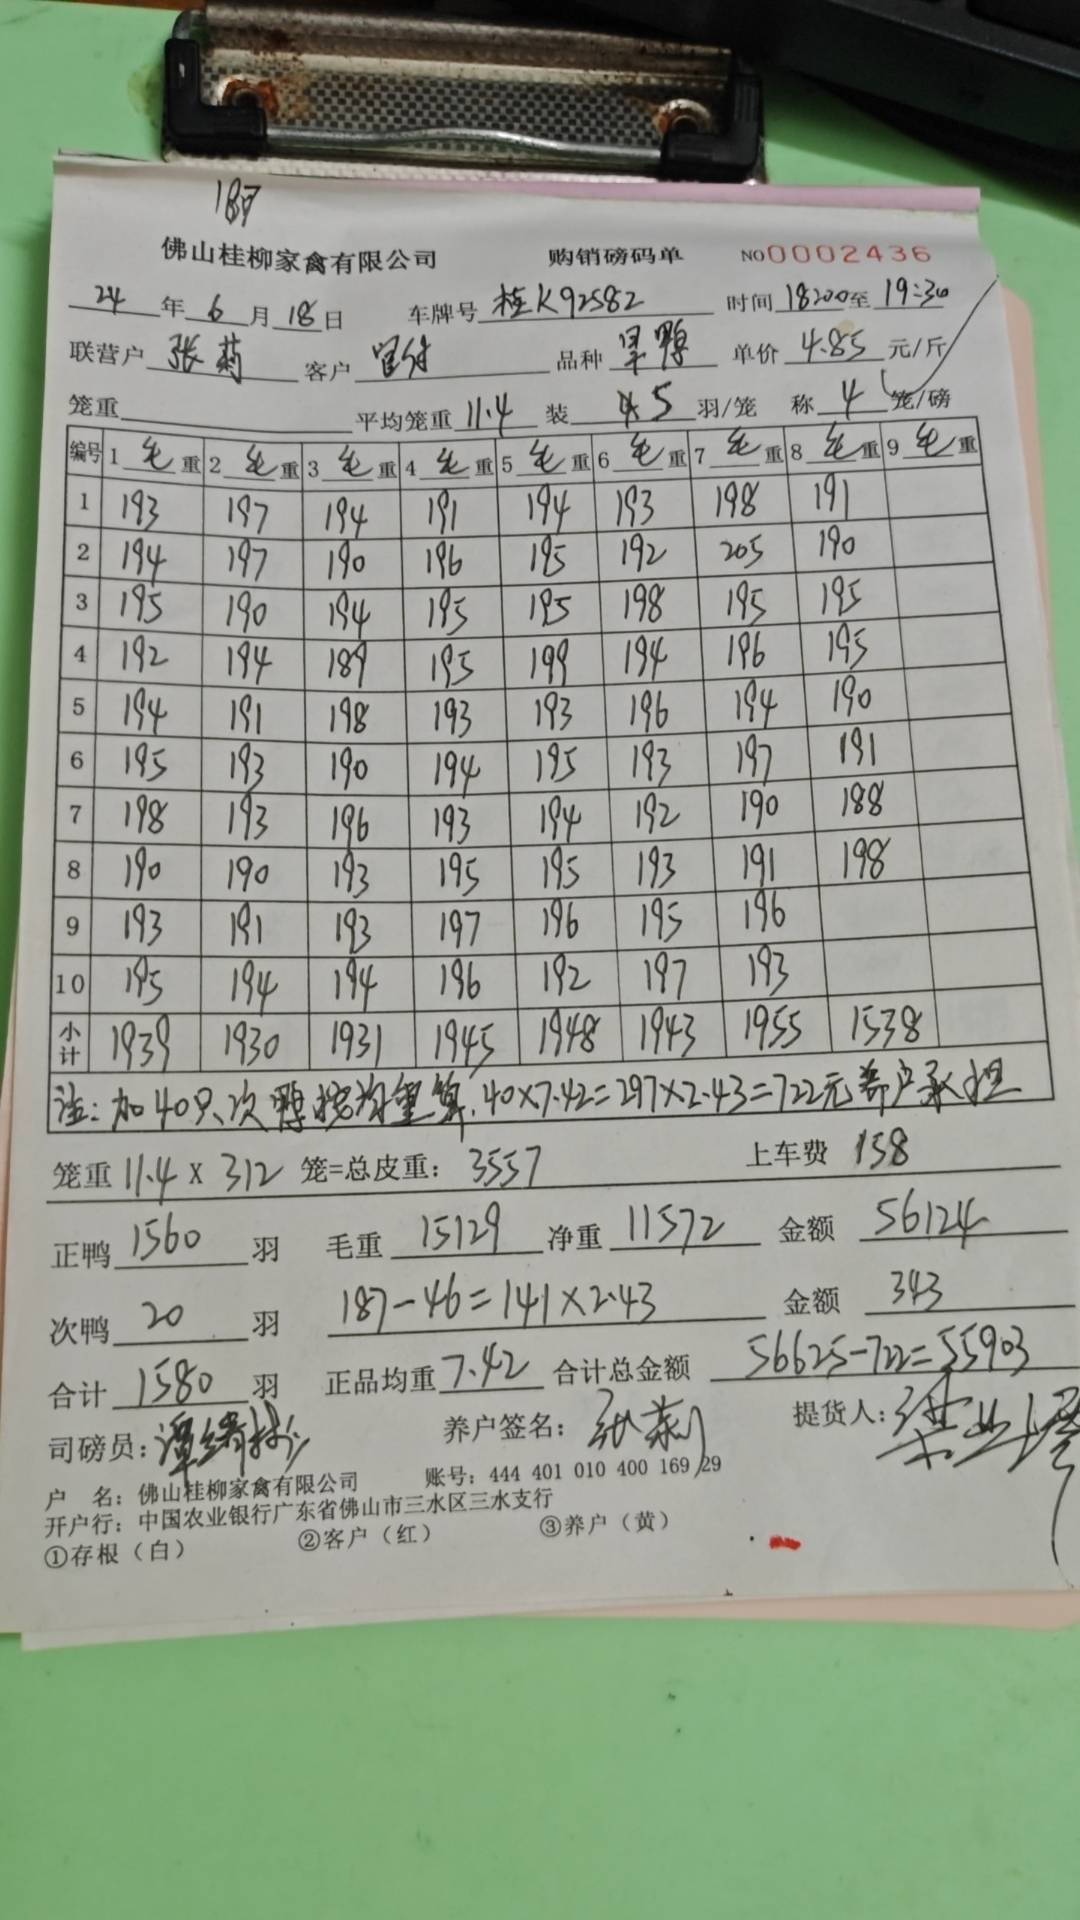 187
佛山桂柳家禽有限公司 购销磅码单 NO0002436
24 年 6 月 18 日 车牌号 桂K92582 时间 18:00 至 19:30
联营户 张菊 客户 品种 旱鸭 单价 4.85 元/斤
笼重 平均笼重 11.4 装 5 羽/笼 称 4 笼/磅
编号 1 毛重 2 毛重 3 毛重 4 毛重 5 毛重 6 毛重 7 毛重 8 毛重 9 毛重
1 193 197 194 191 194 193 198 191
2 194 197 190 196 195 192 205 190
3 195 190 194 195 195 198 195 195
4 192 194 189 195 199 194 196 195
5 194 191 198 193 193 196 194 190
6 195 193 190 194 195 193 197 191
7 198 193 196 193 194 192 190 188
8 190 190 193 195 195 193 191 198
9 193 191 193 197 196 195 196
10 195 194 194 196 192 197 193
小计 1939 1930 1931 1945 1948 1943 1955 1538
注:加40只次鸭按均重算,40×7.42=297×2.43=722元养户承担
笼重 11.4 X 312 笼=总皮重: 3557 上车费 158
正鸭 1560 羽 毛重 15129 净重 11572 金额 56124
次鸭 20 羽 187-46=141×2.43 金额 343
合计 1580 羽 正品均重 7.42 合计总金额 56625-722=55903
司磅员: 养户签名: 提货人:
户 名: 佛山桂柳家禽有限公司 账号: 444 401 010 400 169 29
开户行: 中国农业银行广东省佛山市三水区三水支行
①存根(白) ②客户(红) ③养户(黄)